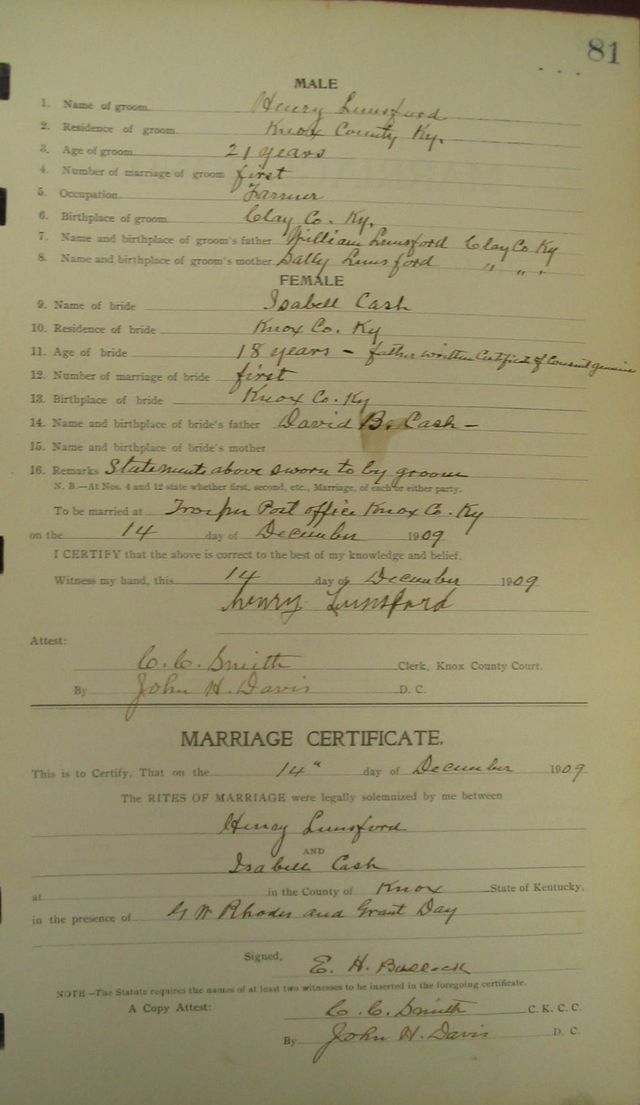 81
MALE
1. Name of groom Henry Lunsford
2. Residence of groom Knox County Ky.
3. Age of groom 21 years
4. Number of marriage of groom first
5. Occupation Farmer
6. Birthplace of groom Clay Co. Ky.
7. Name and birthplace of groom's father William Lunsford Clay Co Ky
8. Name and birthplace of groom's mother Sally Lunsford " " "
FEMALE
9. Name of bride Isabell Cash
10. Residence of bride Knox Co. Ky
11. Age of bride 18 years – father written Certificate of Consent genuine
12. Number of marriage of bride first
13. Birthplace of bride Knox Co. Ky
14. Name and birthplace of bride's father David B. Cash –
15. Name and birthplace of bride's mother
16. Remarks Statements above sworn to by groom
N. B.—At Nos. 4 and 12 state whether first, second, etc., Marriage, of each or either party.
To be married at Trosper Post office Knox Co. Ky
on the 14 day of December 1909
I CERTIFY that the above is correct to the best of my knowledge and belief.
Witness my hand, this 14 day of December 1909
Henry Lunsford
Attest:
C. C. Smith Clerk, Knox County Court.
By John H. Davis D. C.
MARRIAGE CERTIFICATE.
This is to Certify, That on the 14" day of December 1909
The RITES OF MARRIAGE were legally solemnized by me between
Henry Lunsford
AND
Isabell Cash
at in the County of Knox State of Kentucky,
in the presence of G W Rhodes and Grant Day
Signed, E. H. Bullock
NOTE—The Statute requires the names of at least two witnesses to be inserted in the foregoing certificate.
A Copy Attest: C. C. Smith C. K. C. C.
By John H. Davis D. C.